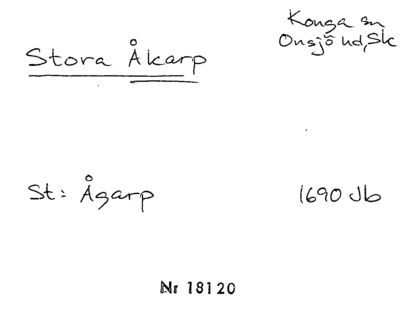 Konga sn
Onsjö hd, Sk
Stora Åkarp
St: Ågarp
1690 Jb
Nr 18120